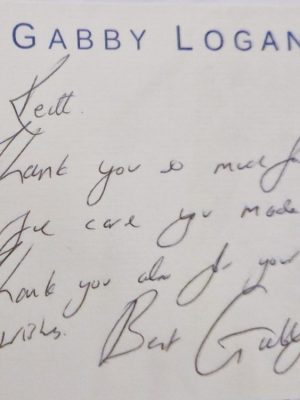 GABBY LOGAN
Thank you so much for
the card you made
Thank you also for your
wishes. Best Gabby